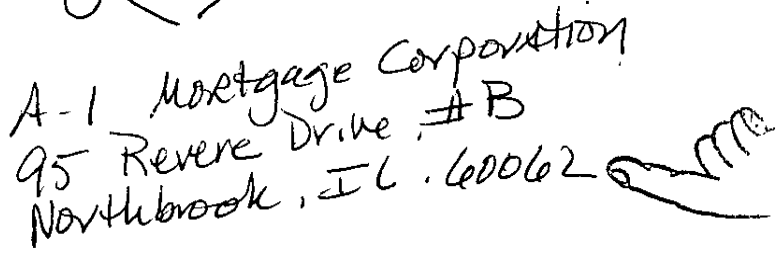 A-1 Mortgage Corporation
95 Revere Drive, #B
Northbrook, IL. 60062